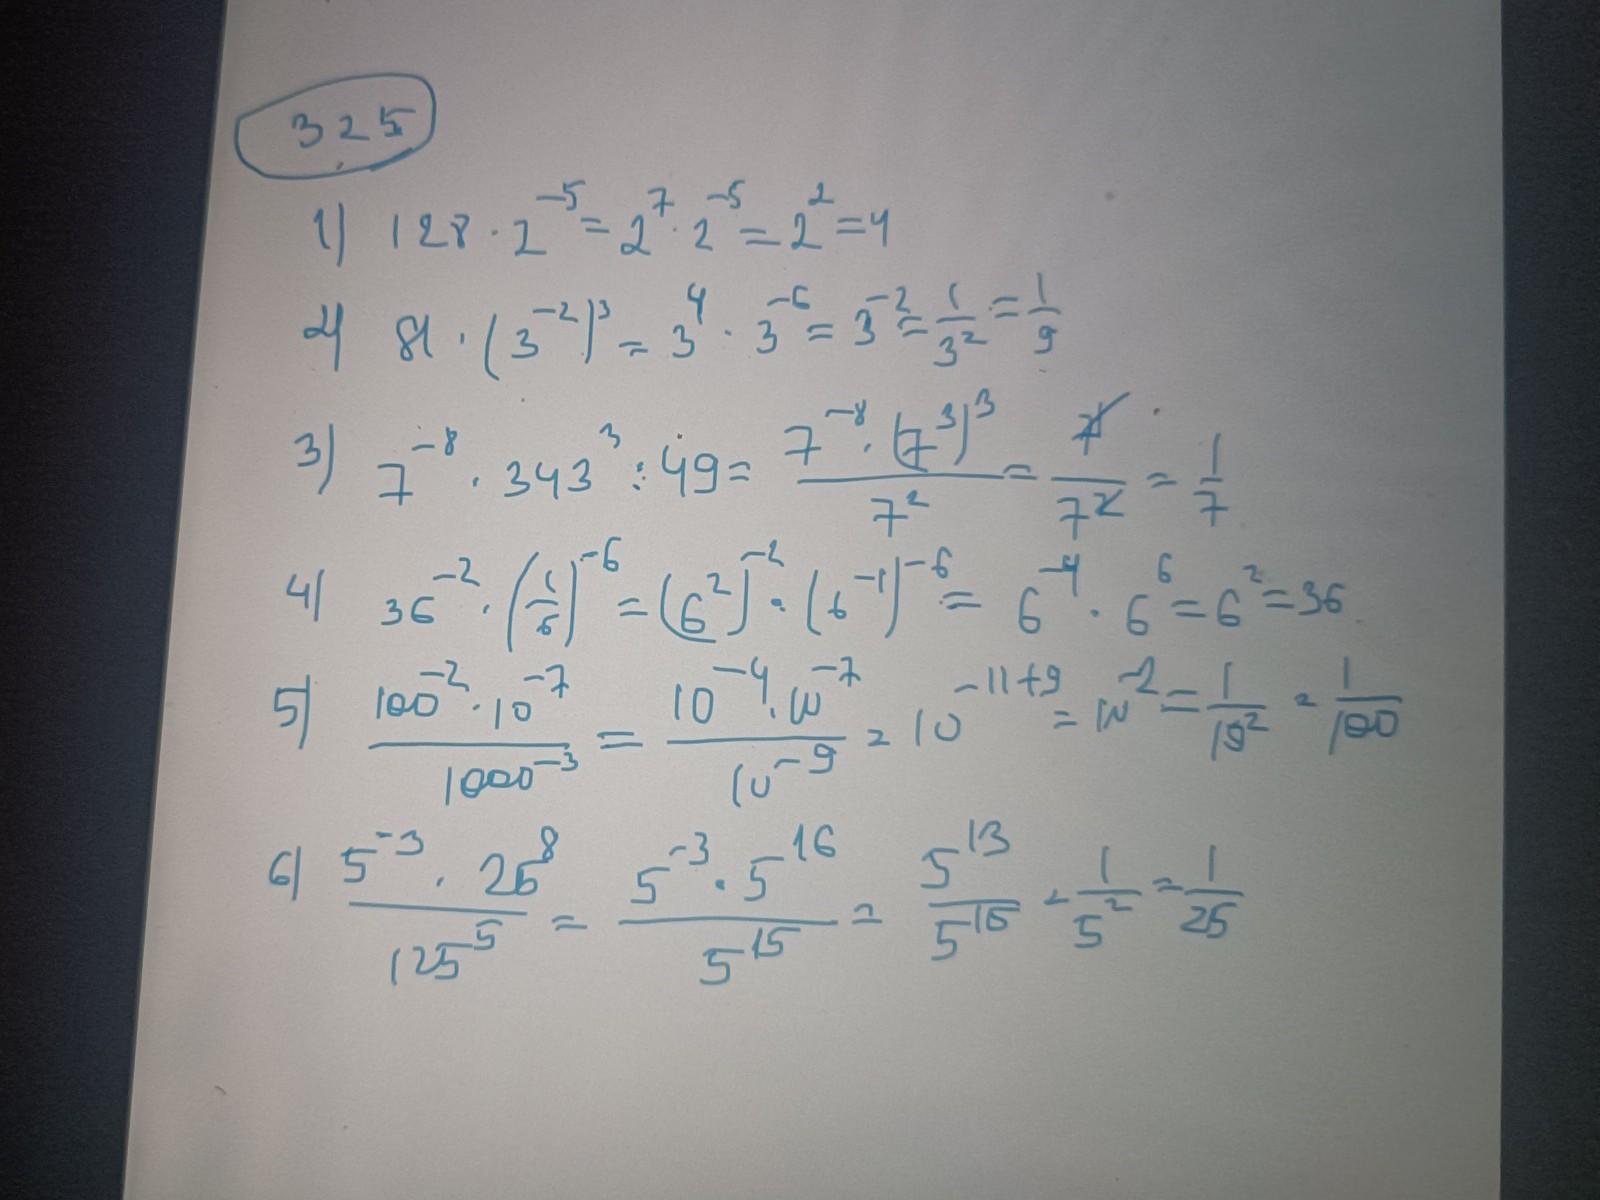 325
1) 128 · 2^-5 = 2^7 · 2^-5 = 2^2 = 4
2) 81 · (3^-2)^3 = 3^4 · 3^-6 = 3^-2 = 1/3^2 = 1/9
3) 7^-8 · 343^3 : 49 = 7^-8 · (7^3)^3 / 7^2 = 7/7^2 = 1/7
4) 36^-2 · (1/6)^-6 = (6^2)^-2 · (6^-1)^-6 = 6^-4 · 6^6 = 6^2 = 36
5) 100^-2 · 10^-7 / 1000^-3 = 10^-4 · 10^-7 / 10^-9 = 10^-11+9 = 10^-2 = 1/10^2 = 1/100
6) 5^-3 · 25^8 / 125^5 = 5^-3 · 5^16 / 5^15 = 5^13 / 5^15 = 1/5^2 = 1/25